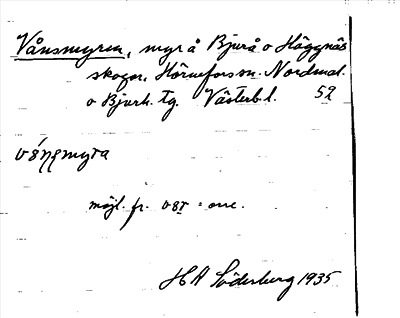 Vånsmyren, myr å Bjurå o Häggnäs
skogar, Hörneforssn. Nordmal.
o Bjurh. tg. Västerb.l. 52
möjl. fr. = orre.
H A Söderberg 1935